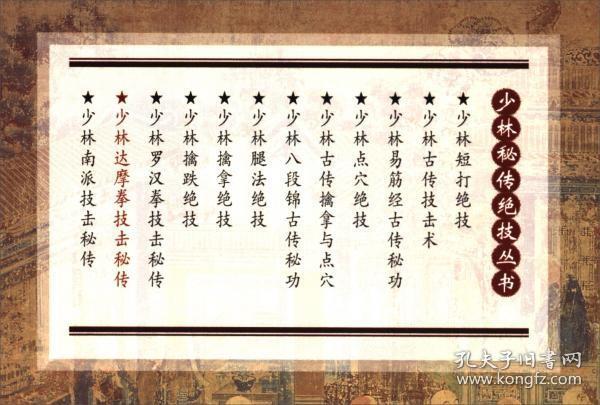 少林秘传绝技丛书
★少林短打绝技
★少林古传技击术
★少林易筋经古传秘功
★少林点穴绝技
★少林古传擒拿与点穴
★少林八段锦古传秘功
★少林腿法绝技
★少林擒拿绝技
★少林擒跌绝技
★少林罗汉拳技击秘传
★少林达摩拳技击秘传
★少林南派技击秘传
孔夫子旧书网
www.kongfz.com